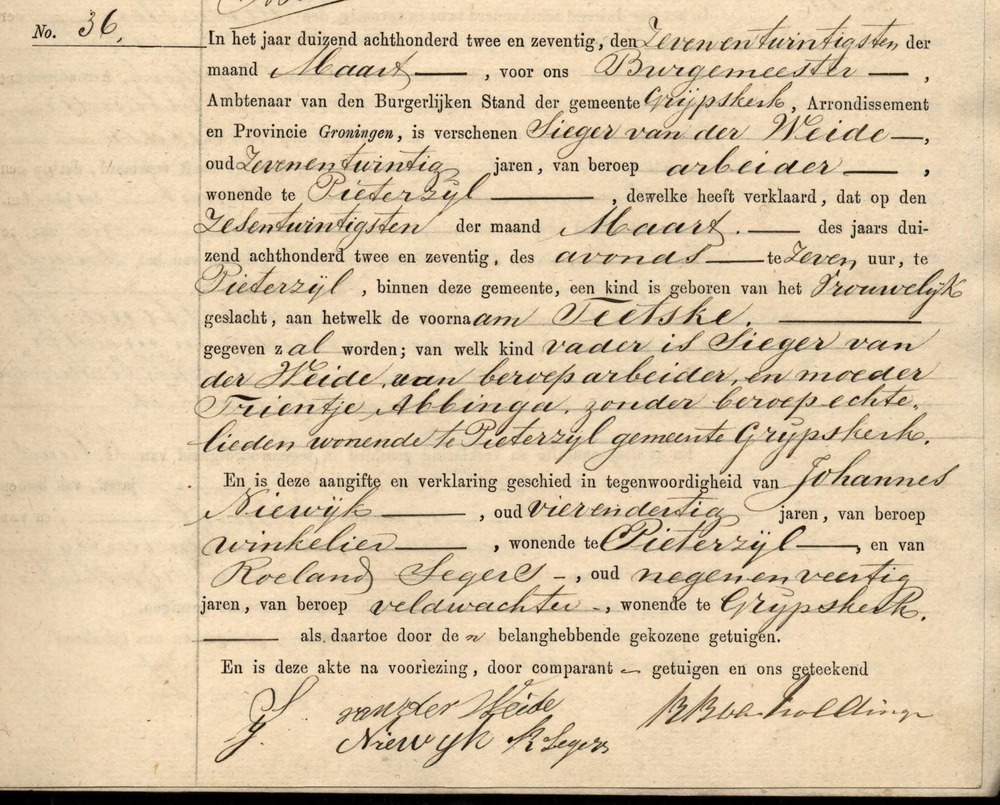 No. 36.
In het jaar duizend achthonderd twee en zeventig, den Zevenentwintigsten der
maand Maart —, voor ons Burgemeester —,
Ambtenaar van den Burgerlijken Stand der gemeente Grijpskerk, Arrondissement
en Provincie Groningen, is verschenen Sieger van der Weide —,
oud Zevenentwintig jaren, van beroep arbeider —,
wonende te Pieterzijl —, dewelke heeft verklaard, dat op den
Zesentwintigsten der maand Maart. — des jaars dui-
zend achthonderd twee en zeventig, des avonds — te Zeven uur, te
Pieterzijl, binnen deze gemeente, een kind is geboren van het Vrouwelijk
geslacht, aan hetwelk de voornaam Tietske. —
gegeven zal worden; van welk kind vader is Sieger van
der Weide, van beroep arbeider, en moeder
Trientje Abbinga, zonder beroep echte-
lieden wonende te Pieterzijl gemeente Grijpskerk.
En is deze aangifte en verklaring geschied in tegenwoordigheid van Johannes
Niewijk —, oud vierendertig jaren, van beroep
winkelier —, wonende te Pieterzijl —, en van
Roeland Segers -, oud negenenveertig
jaren, van beroep veldwachter -, wonende te Grijpskerk.
— als daartoe door de n belanghebbende gekozene getuigen.
En is deze akte na voorlezing, door comparant — getuigen en ons geteekend
S van der Weide
J. Niewijk R Segers